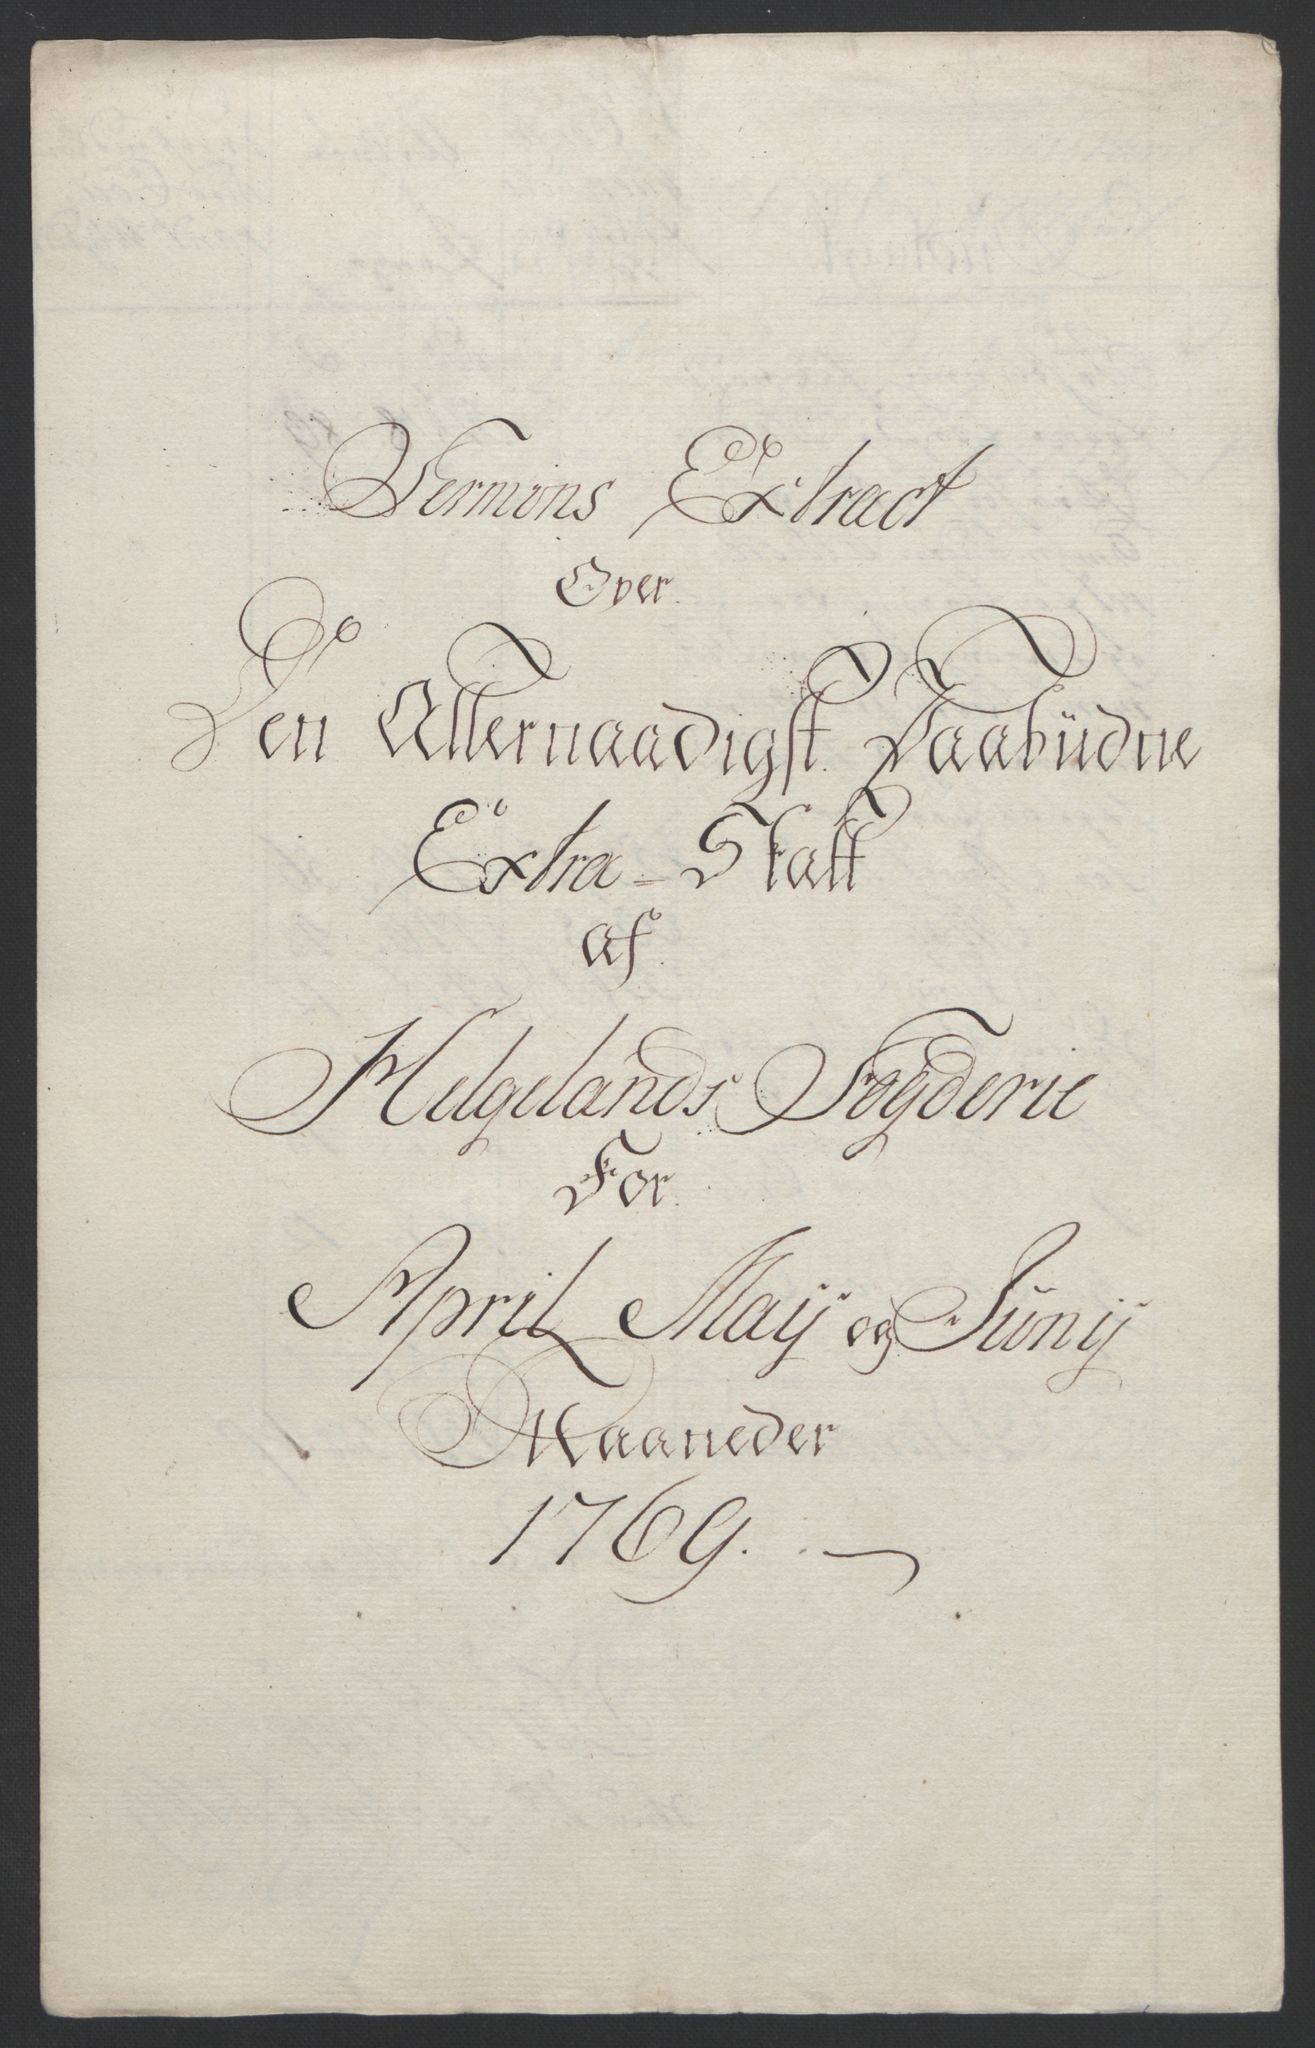 Termins Extract
Over.
Den Allernaadigst Paabüdne
Extra-Skatt
af.
Helgelands Fogderie
For.
April Maij og Junij
Maaneder
1769.